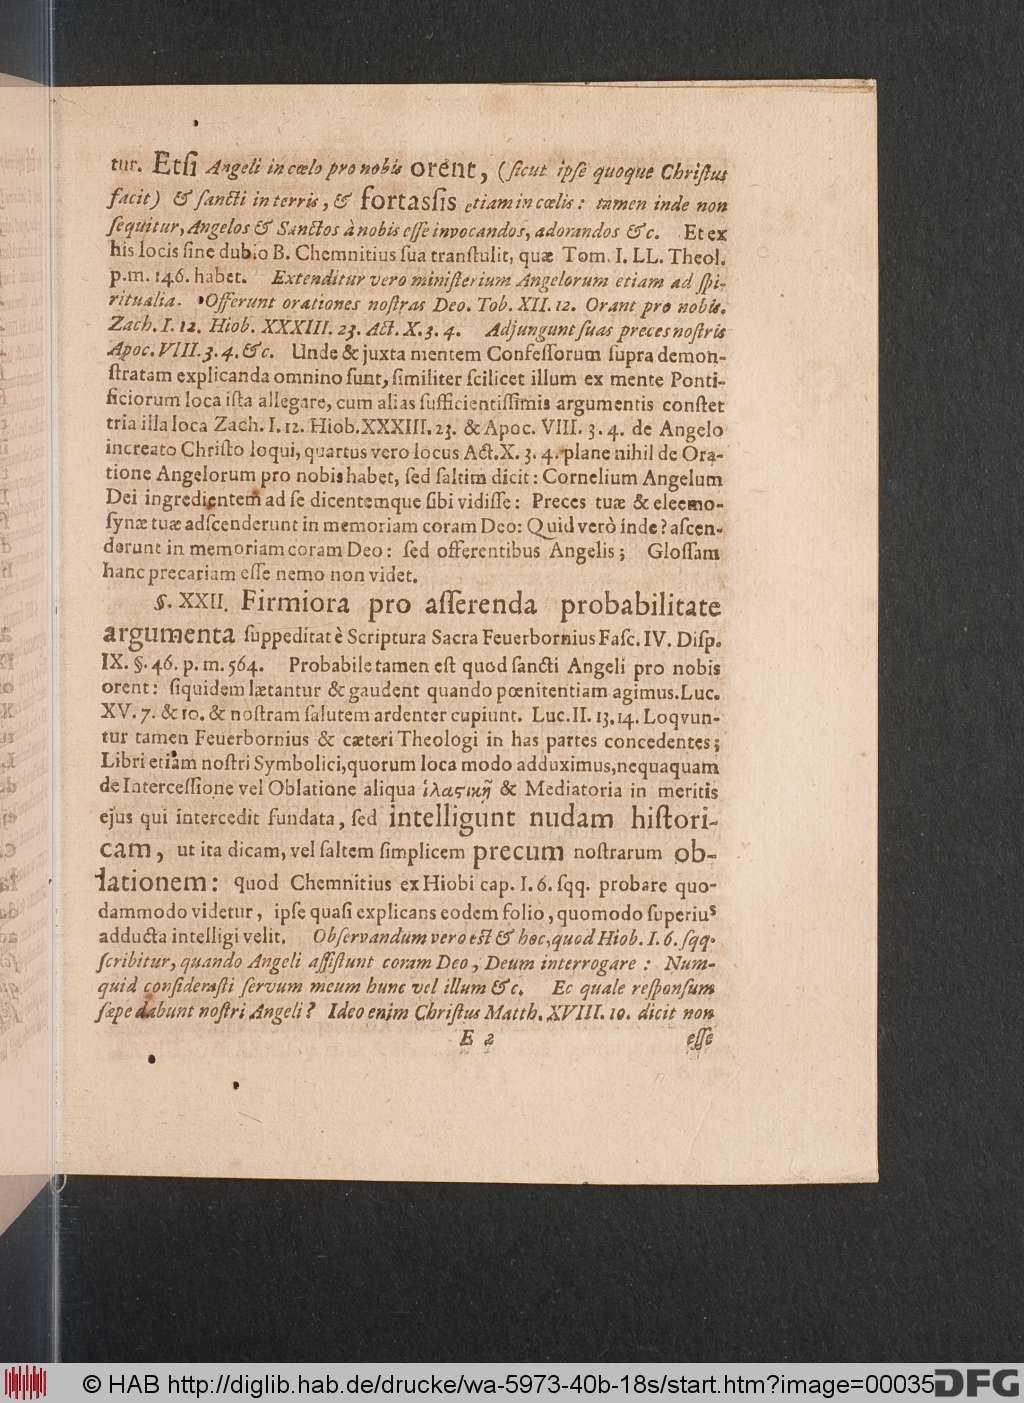 tur. Etſi Angeli in cœlo pro nobis orent, (ſicut ipſe quoque Chriſtus
facit) & ſancti in terris, & fortasſis etiam in cœlis: tamen inde non
ſequitur, Angelos & Sanctos à nobis eſſe invocandos, adorandos &c. Et ex
his locis ſine dubio B. Chemnitius ſua tranſtulit, quæ Tom. I. LL. Theol.
p. m. 146. habet. Extenditur vero miniſterium Angelorum etiam ad ſpi-
ritualia. Offerunt orationes noſtras Deo. Tob. XII. 12. Orant pro nobis.
Zach. I. 12. Hiob. XXXIII. 23. Act. X. 3. 4. Adjungunt ſuas preces noſtris
Apoc. VIII. 3. 4. &c. Unde & juxta mentem Confeſſorum ſupra demon-
ſtratam explicanda omnino ſunt, ſimiliter ſcilicet illum ex mente Ponti-
ficiorum loca iſta allegare, cum alias ſufficientiſſimis argumentis conſtet
tria illa loca Zach. I. 12. Hiob. XXXIII. 23. & Apoc. VIII. 3. 4. de Angelo
increato Chriſto loqui, quartus vero locus Act. X. 3. 4. plane nihil de Ora-
tione Angelorum pro nobis habet, ſed ſaltim dicit: Cornelium Angelum
Dei ingredientem ad ſe dicentemque ſibi vidiſſe: Preces tuæ & eleemo-
ſynæ tuæ adſcenderunt in memoriam coram Deo: Quid verò inde? aſcen-
derunt in memoriam coram Deo: ſed offerentibus Angelis; Gloſſam
hanc precariam eſſe nemo non videt.
§. XXII. Firmiora pro aſſerenda probabilitate
argumenta ſuppeditat è Scriptura Sacra Feuerbornius Faſc. IV. Diſp.
IX. §. 46. p. m. 564. Probabile tamen eſt quod ſancti Angeli pro nobis
orent: ſiquidem lætantur & gaudent quando pœnitentiam agimus. Luc.
XV. 7. & 10. & noſtram ſalutem ardenter cupiunt. Luc. II. 13. 14. Loqvun-
tur tamen Feuerbornius & cæteri Theologi in has partes concedentes;
Libri etiam noſtri Symbolici, quorum loca modo adduximus, nequaquam
de Interceſſione vel Oblatione aliqua ἱλαςικῇ & Mediatoria in meritis
ejus qui intercedit fundata, ſed intelligunt nudam hiſtori-
cam, ut ita dicam, vel ſaltem ſimplicem precum noſtrarum ob-
lationem: quod Chemnitius ex Hiobi cap. I. 6. ſqq. probare quo-
dammodo videtur, ipſe quaſi explicans eodem folio, quomodo ſuperius
adducta intelligi velit. Obſervandum vero est & hoc, quod Hiob. I. 6. ſqq.
ſcribitur, quando Angeli aſſiſtunt coram Deo, Deum interrogare: Num-
quid conſideraſti ſervum meum hunc vel illum &c. Ec quale reſponſum
ſæpe dabunt noſtri Angeli? Ideo enim Chriſtus Matth. XVIII. 10. dicit non
E 2 eſſe
© HAB http://diglib.hab.de/drucke/wa-5973-40b-18s/start.htm?image=00035
DFG